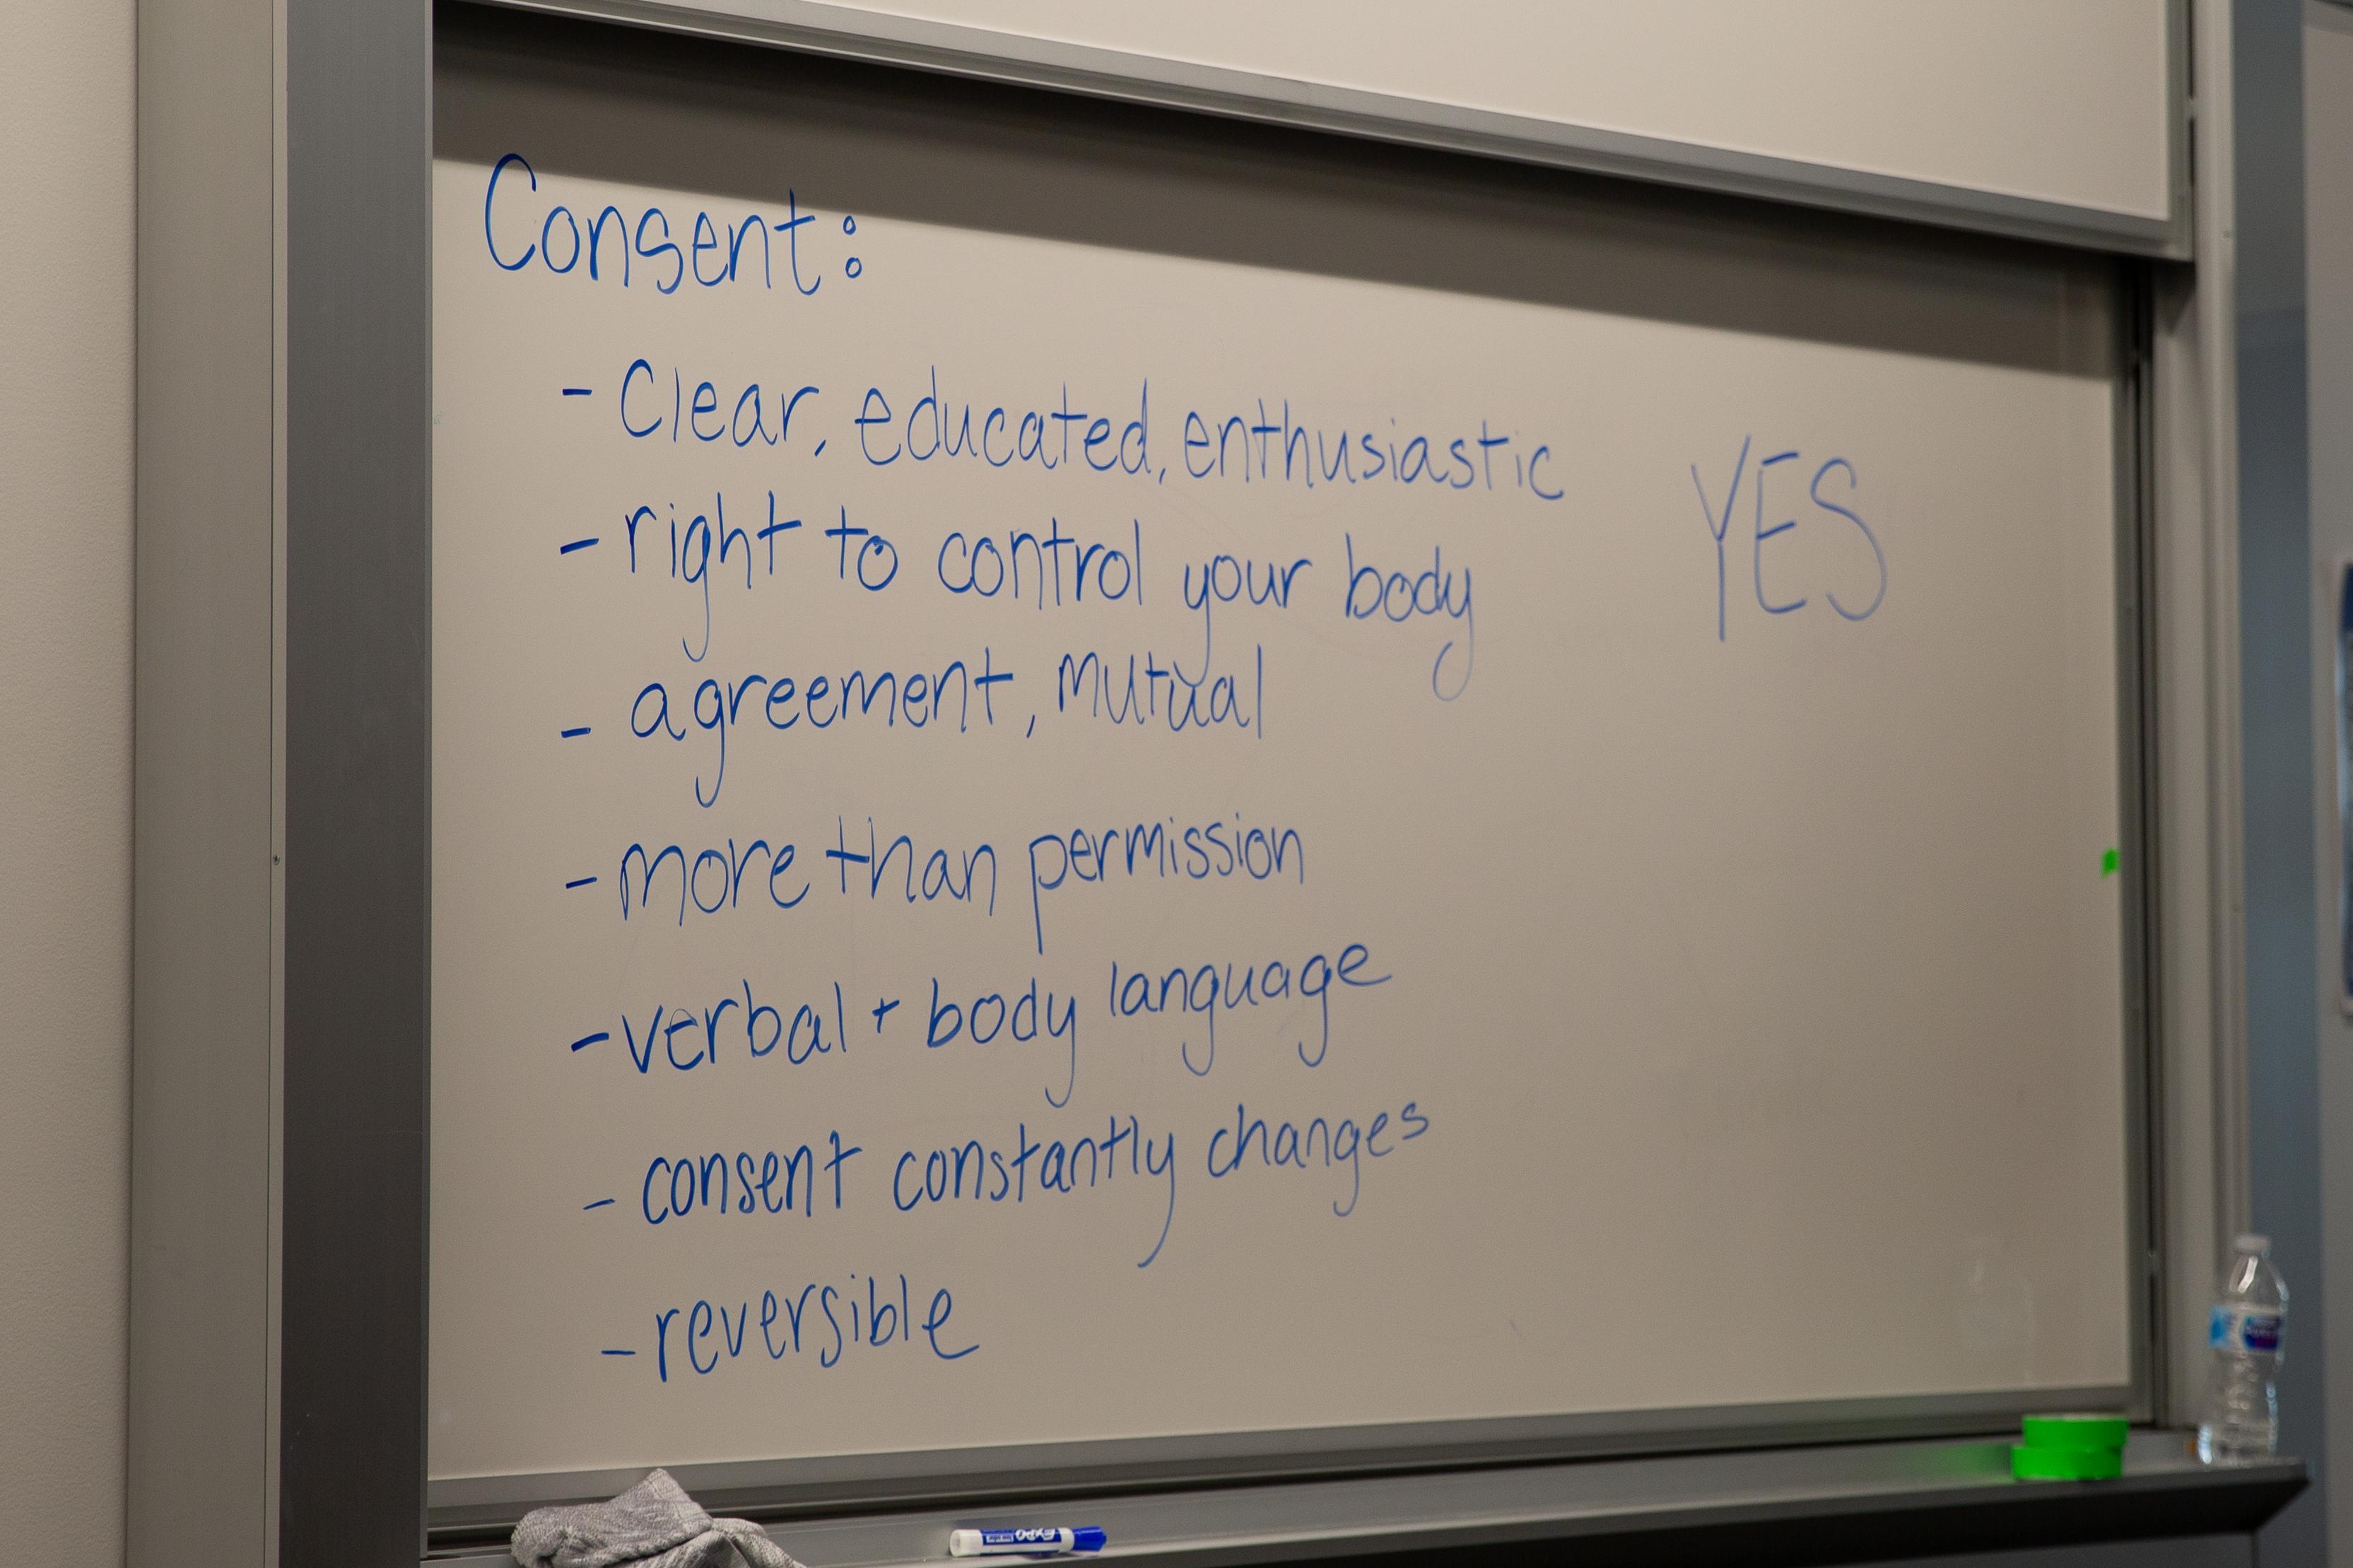 Consent:
- Clear, educated, enthusiastic
YES
- right to control your body
- agreement, mutual
- more than permission
- verbal + body language
- consent constantly changes
- reversible
EXPO